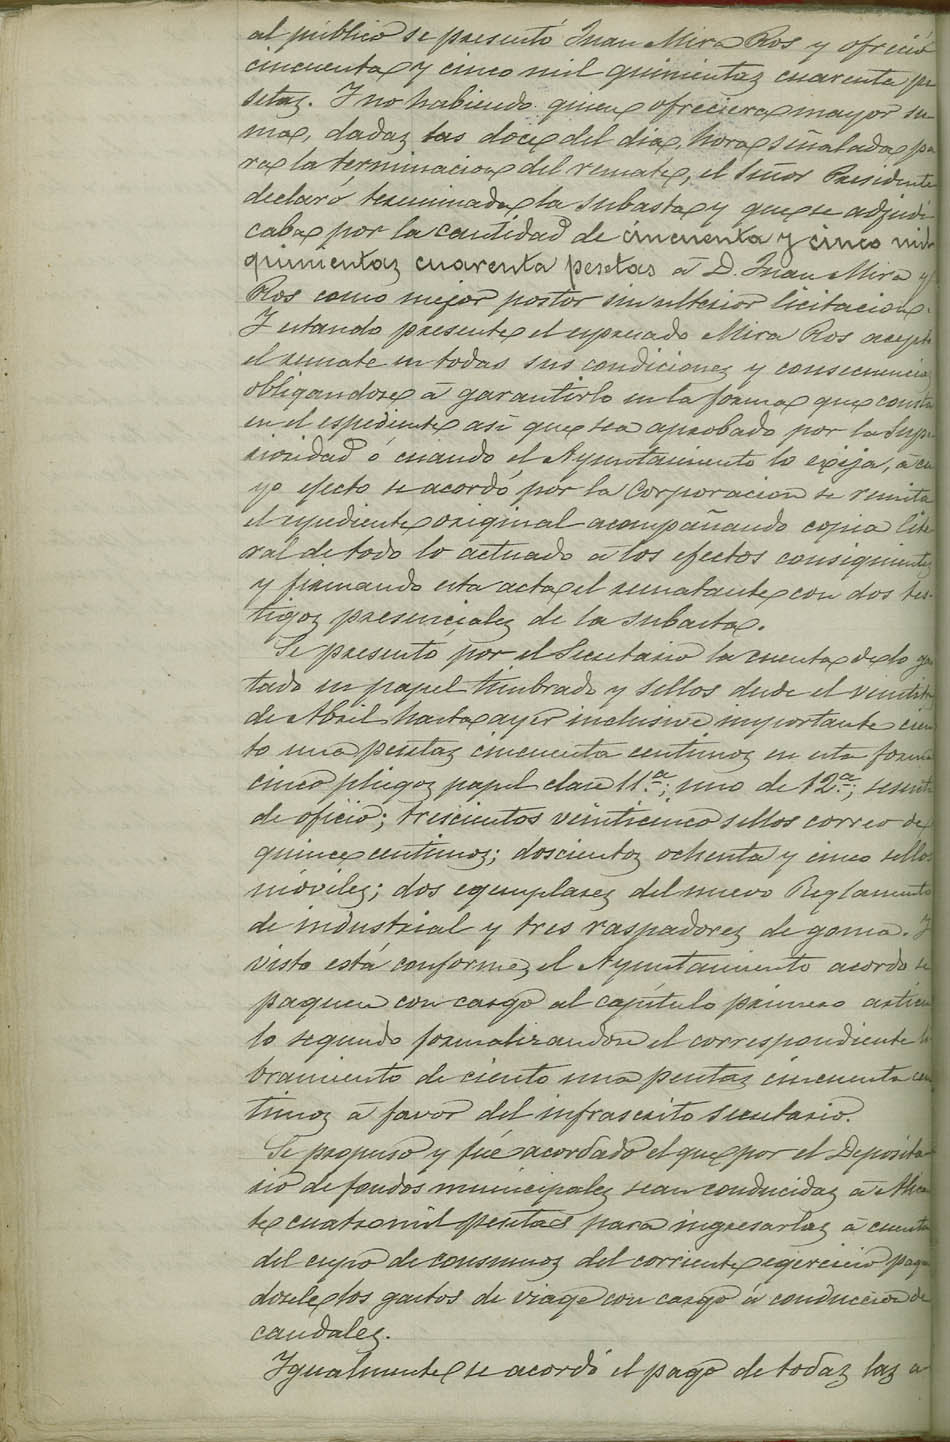 al público se presentó Juan Mira Ros y ofreció
cincuenta y cinco mil quinientas cuarenta pe
setas. Y no habiendo quien ofreciera mayor su-
ma, dadas las doce del dia, hora señalada pa
ra la terminacion del remate, el Señor Presidente
declaró terminada la subasta y que se adjudi
caba por la cantidad de cincuenta y cinco mil
quinientas cuarenta pesetas á D. Juan Mira y
Ros como mejor postor sin ulterior licitacion.
Y estando presente el espresado Mira Ros aceptó
el remate en todas sus condiciones y consecuencias
obligandose á garantirlo en la forma que consta
en el espediente asi que sea aprobado por la Supe
rioridad ó cuando el Ayuntamiento lo exija, á cu
yo efecto se acordó por la Corporacion se remita
el espediente original acompañando copia lite
ral de todo lo actuado a los efectos consiguientes
y firmando esta acta el rematante con dos tes-
tigos presenciales de la subasta.
Se presentó por el Secretario la cuenta de lo gas
tado en papel timbrado y sellos desde el veintitres
de Abril hasta ayer inclusive importante cien
to una pesetas cincuenta centimos en esta forma
cinco pliegos papel clase 11.ª; uno de 12.ª; sesenta
de oficio; trescientos veinticinco sellos correo de
quince centimos; doscientos ochenta y cinco sellos
móviles; dos egemplares del nuevo Reglamento
de industrial y tres raspadores de goma. Y
visto está conforme, el Ayuntamiento acordó se
paguen con cargo al capítulo primero artícu
lo segundo formalizandose el correspondiente li
bramiento de ciento una pesetas cincuenta cen
timos á favor del infrascrito secretario.
Se propuso y fué acordado el que por el Deposita
rio de fondos municipales sean conducidas á Alican
te cuatro mil pesetas para ingresarlas á cuenta
del cupo de consumos del corriente egercicio pagan
dosele los gastos de viage con cargo á conduccion de
caudales.
Igualmente se acordó el pago de todas las a